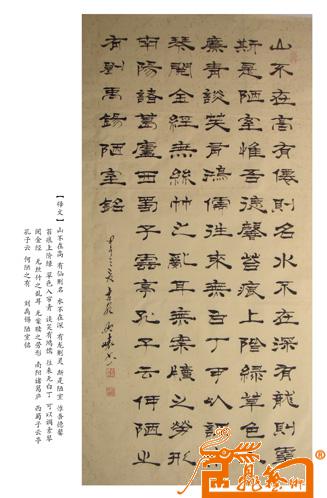 山不在高有僊則名水不在深有龍則靈
斯是陋室惟吾德馨苔痕上階綠草色入
簾青談笑有鴻儒往來無白丁可以調素
琴閱金經無絲竹之亂耳無案牘之勞形
南陽諸葛廬西蜀子雲亭孔子云何陋之
有劉禹錫陋室銘
【释文】山不在高 有仙则名 水不在深 有龙则灵 斯是陋室 惟吾德馨
苔痕上阶绿 草色入帘青 谈笑有鸿儒 往来无白丁 可以调素琴
阅金经 无丝竹之乱耳 无案牍之劳形 南阳诸葛庐 西蜀子云亭
孔子云 何陋之有 刘禹锡 陋室铭